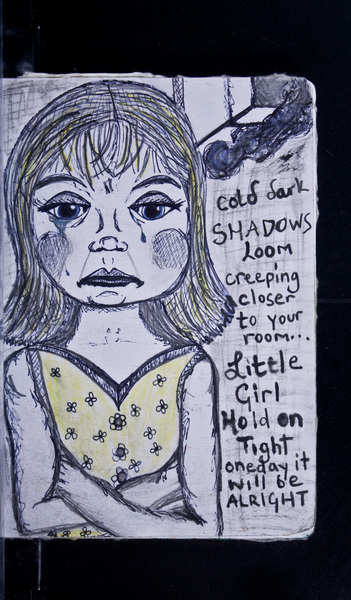 cold dark
SHADOWS
Loom
creeping
closer
to your
room...
Little
Girl
Hold on
Tight
oneday it
will be
ALRIGHT